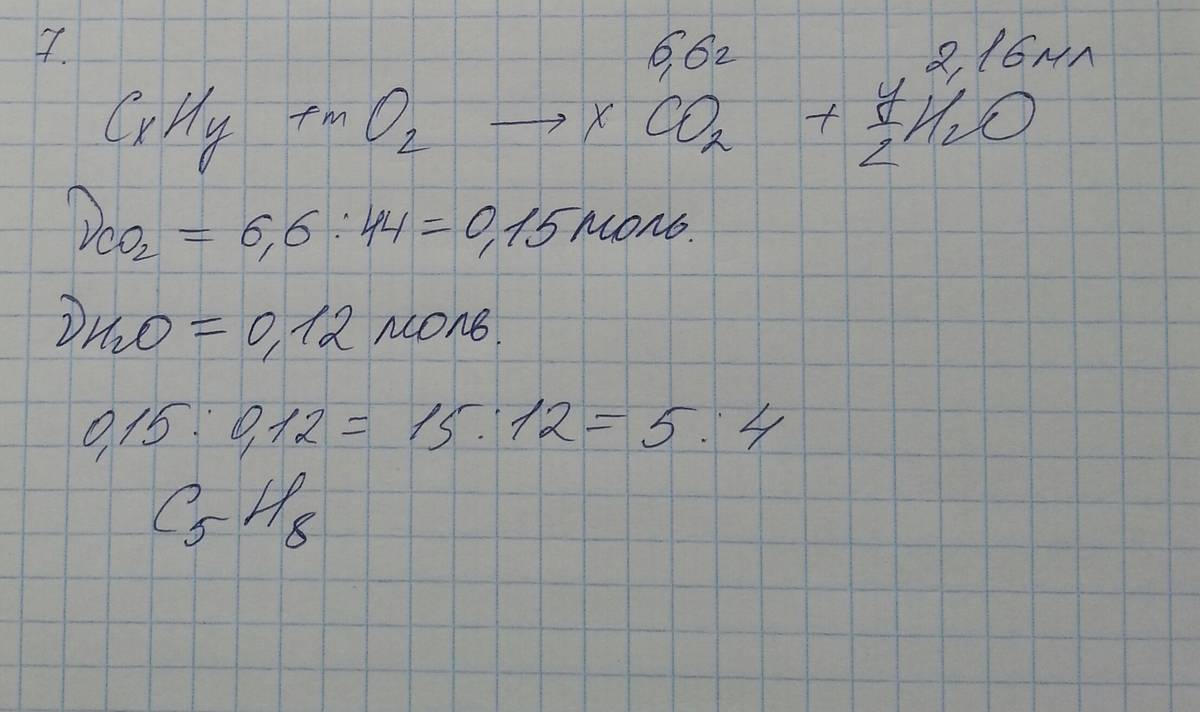 7.
6,6г 2,16мл
CxHy + m O2 → x CO2 + y/2 H2O
νCO2 = 6,6 : 44 = 0,15 моль.
νH2O = 0,12 моль.
0,15 : 0,12 = 15 : 12 = 5 : 4
C5H8